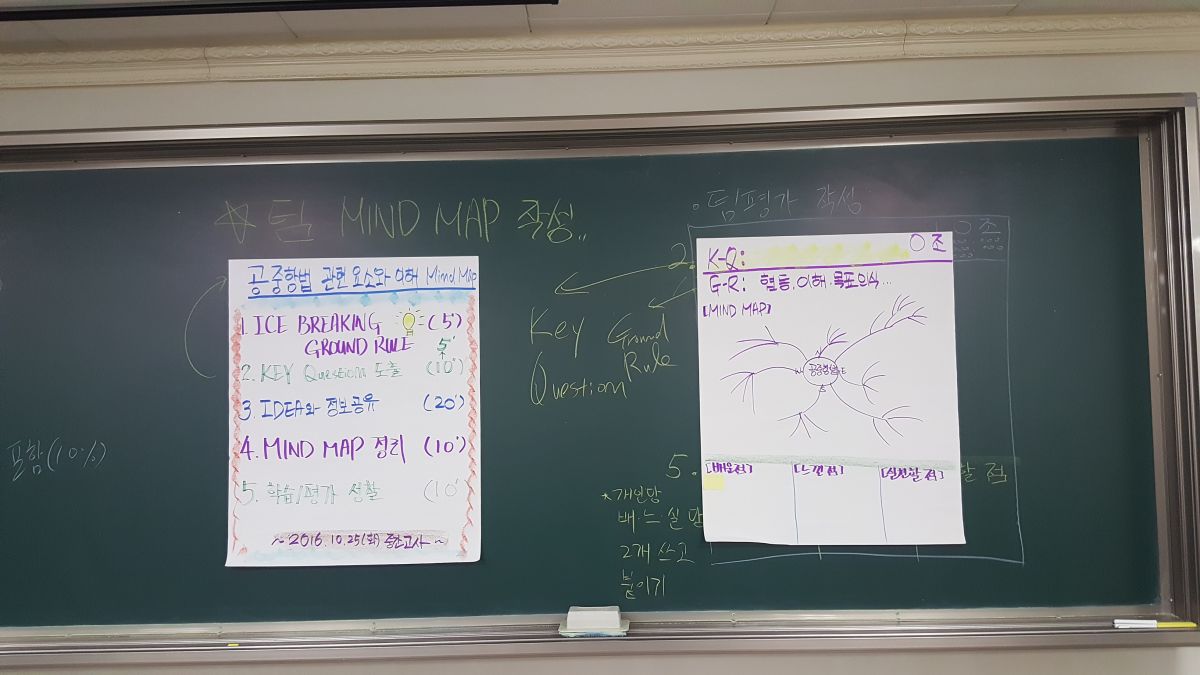 ☆ 팀 MIND MAP 작성..
공중항법 관련 요소와 이해 Mind Map
1. ICE BREAKING (5')
GROUND RULE 5'
2. KEY Question 도출 (10')
3. IDEA와 정보공유 (20')
4. MIND MAP 정리 (10')
5. 학습/평가 성찰 (10')
~ 2016. 10. 25(화) 중간고사 ~
포함(10%)
Key
Question
Ground
Rule
○팀평가 작성
2.
○조
○조
K-Q:
G-R: 협동, 이해, 목표의식...
[MIND MAP]
N
W 공중항법 E
S
5.
[배운점] [느낀점] [실천할 점]
할 점
*개인당
배·느·실 당
2개 쓰고
붙이기